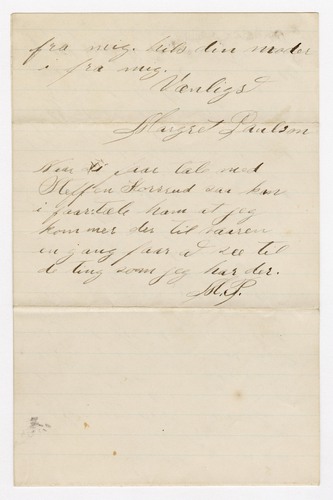 fra mig. hils din moder
i fra mig.
Venligst
Margret Paulson
i faar tale med
Steffen kan
i faartæle ham at jeg
kommer der til vaaren
en gang faar at see til
de ting som jeg har der.
M. P.